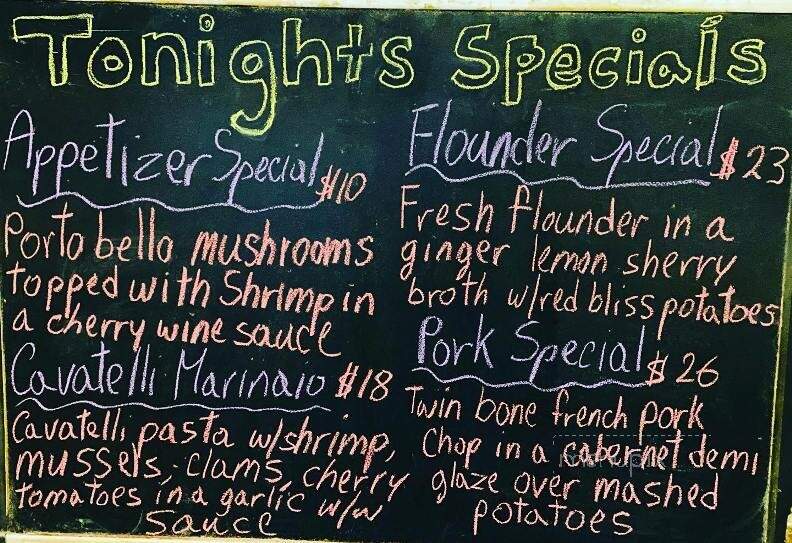 Tonights Specials
Appetizer Special $10
Porto bello mushrooms
topped with Shrimp in
a cherry wine sauce
Cavatelli Marinaio $18
Cavatelli pasta w/shrimp,
mussels, clams, cherry
tomatoes in a garlic w/w
sauce
Flounder Special $23
Fresh flounder in a
ginger lemon sherry
broth w/red bliss potatoes
Pork Special $26
Twin bone french pork
Chop in a cabernet demi
glaze over mashed
potatoes